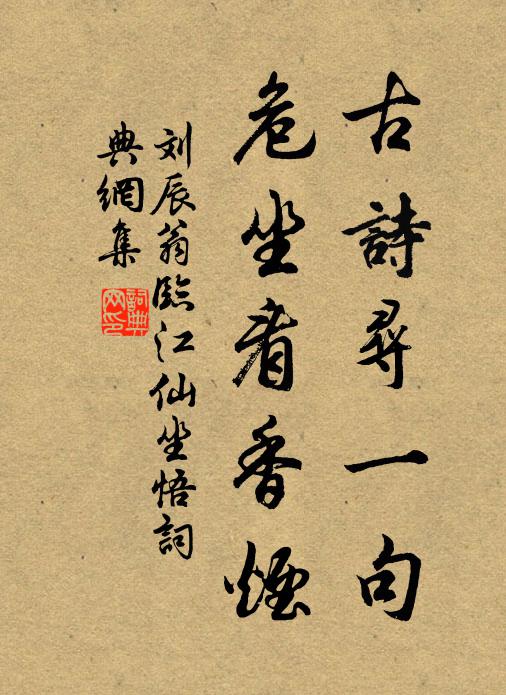 古詩尋一句
危坐看香煙
刘辰翁臨江仙坐悟詞
典網集
詞典网印